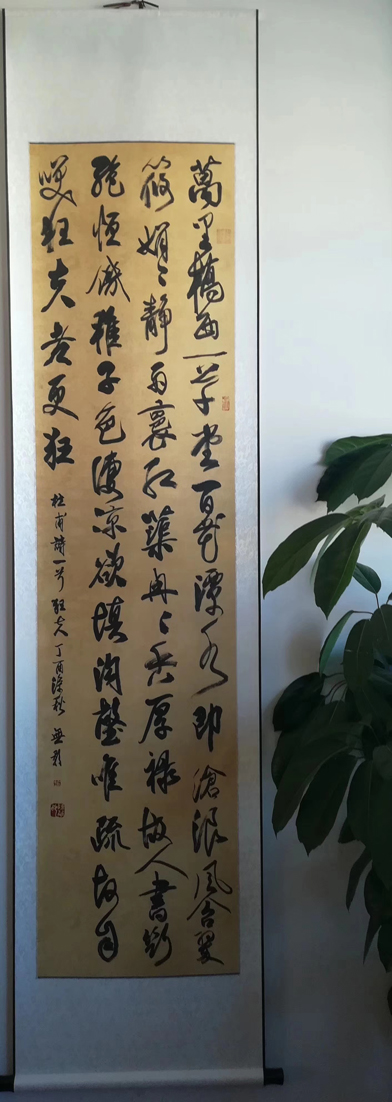 萬里橋西一草堂百花潭水即滄浪風含翠
筱娟〻静雨裛红蕖冉〻香厚禄故人書断
絶恒饑稚子色凄凉欲填沟壑唯疏放自
咲狂夫老更狂
杜甫詩一首狂夫丁酉深秋